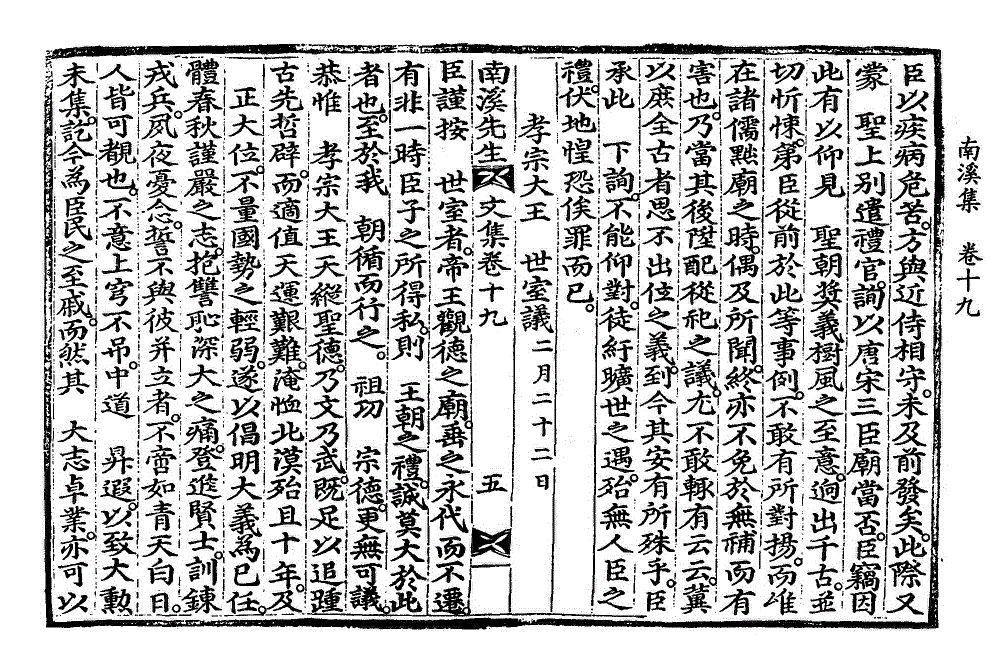 南溪集　卷十九
臣以疾病危苦。方與近侍相守。未及前發矣。此際又
蒙　聖上別遣禮官。詢以唐宋三臣廟當否。臣竊因
此有以仰見　聖朝奬義樹風之至意。逈出千古。並
切忻悚。第臣從前於此等事例。不敢有所對揚。而唯
在諸儒黜廟之時。偶及所聞。終亦不免於無補而有
害也。乃當其後陞配從祀之議。尤不敢輒有云云。冀
以庶全古者思不出位之義。到今其安有所殊乎。臣
承此　下詢。不能仰對。徒紆曠世之遇。殆無人臣之
禮。伏地惶恐俟罪而已。
孝宗大王　世室議二月二十二日
南溪先生文集卷十九　五
臣謹按　世室者。帝王觀德之廟。垂之永代而不遷。
有非一時臣子之所得私。則　王朝之禮。誠莫大於此
者也。至於我　朝循而行之。　祖功　宗德。更無可議。
恭惟　孝宗大王天縱聖德。乃文乃武。旣足以追踵
古先哲辟。而適値天運艱難。淹恤北漠殆且十年。及
正大位。不量國勢之輕弱。遂以倡明大義爲已任。
體春秋謹嚴之志。抱讐恥深大之痛。登進賢士。訓鍊
戎兵。夙夜憂念。誓不與彼幷立者。不啻如靑天白日。
人皆可覩也。不意上穹不吊。中道　昇遐。以致大勳
未集。記今爲臣民之至戚。而然其　大志卓業。亦可以